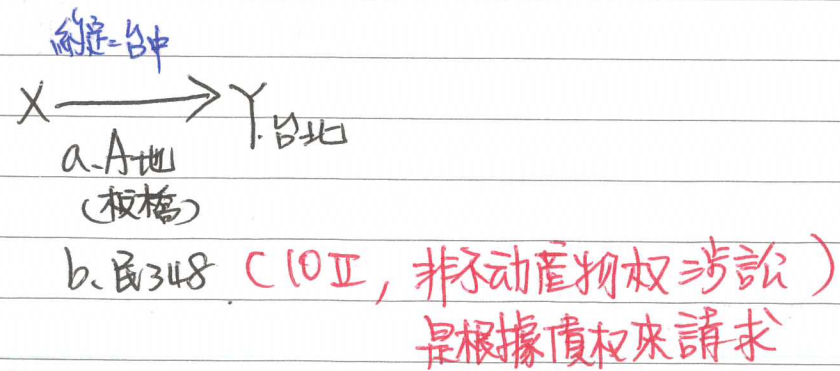 約定=台中
X → Y.台北
a、A地
(板橋)
b、民348 (10Ⅱ, 非不动產物权涉訟)
是根據債权來請求